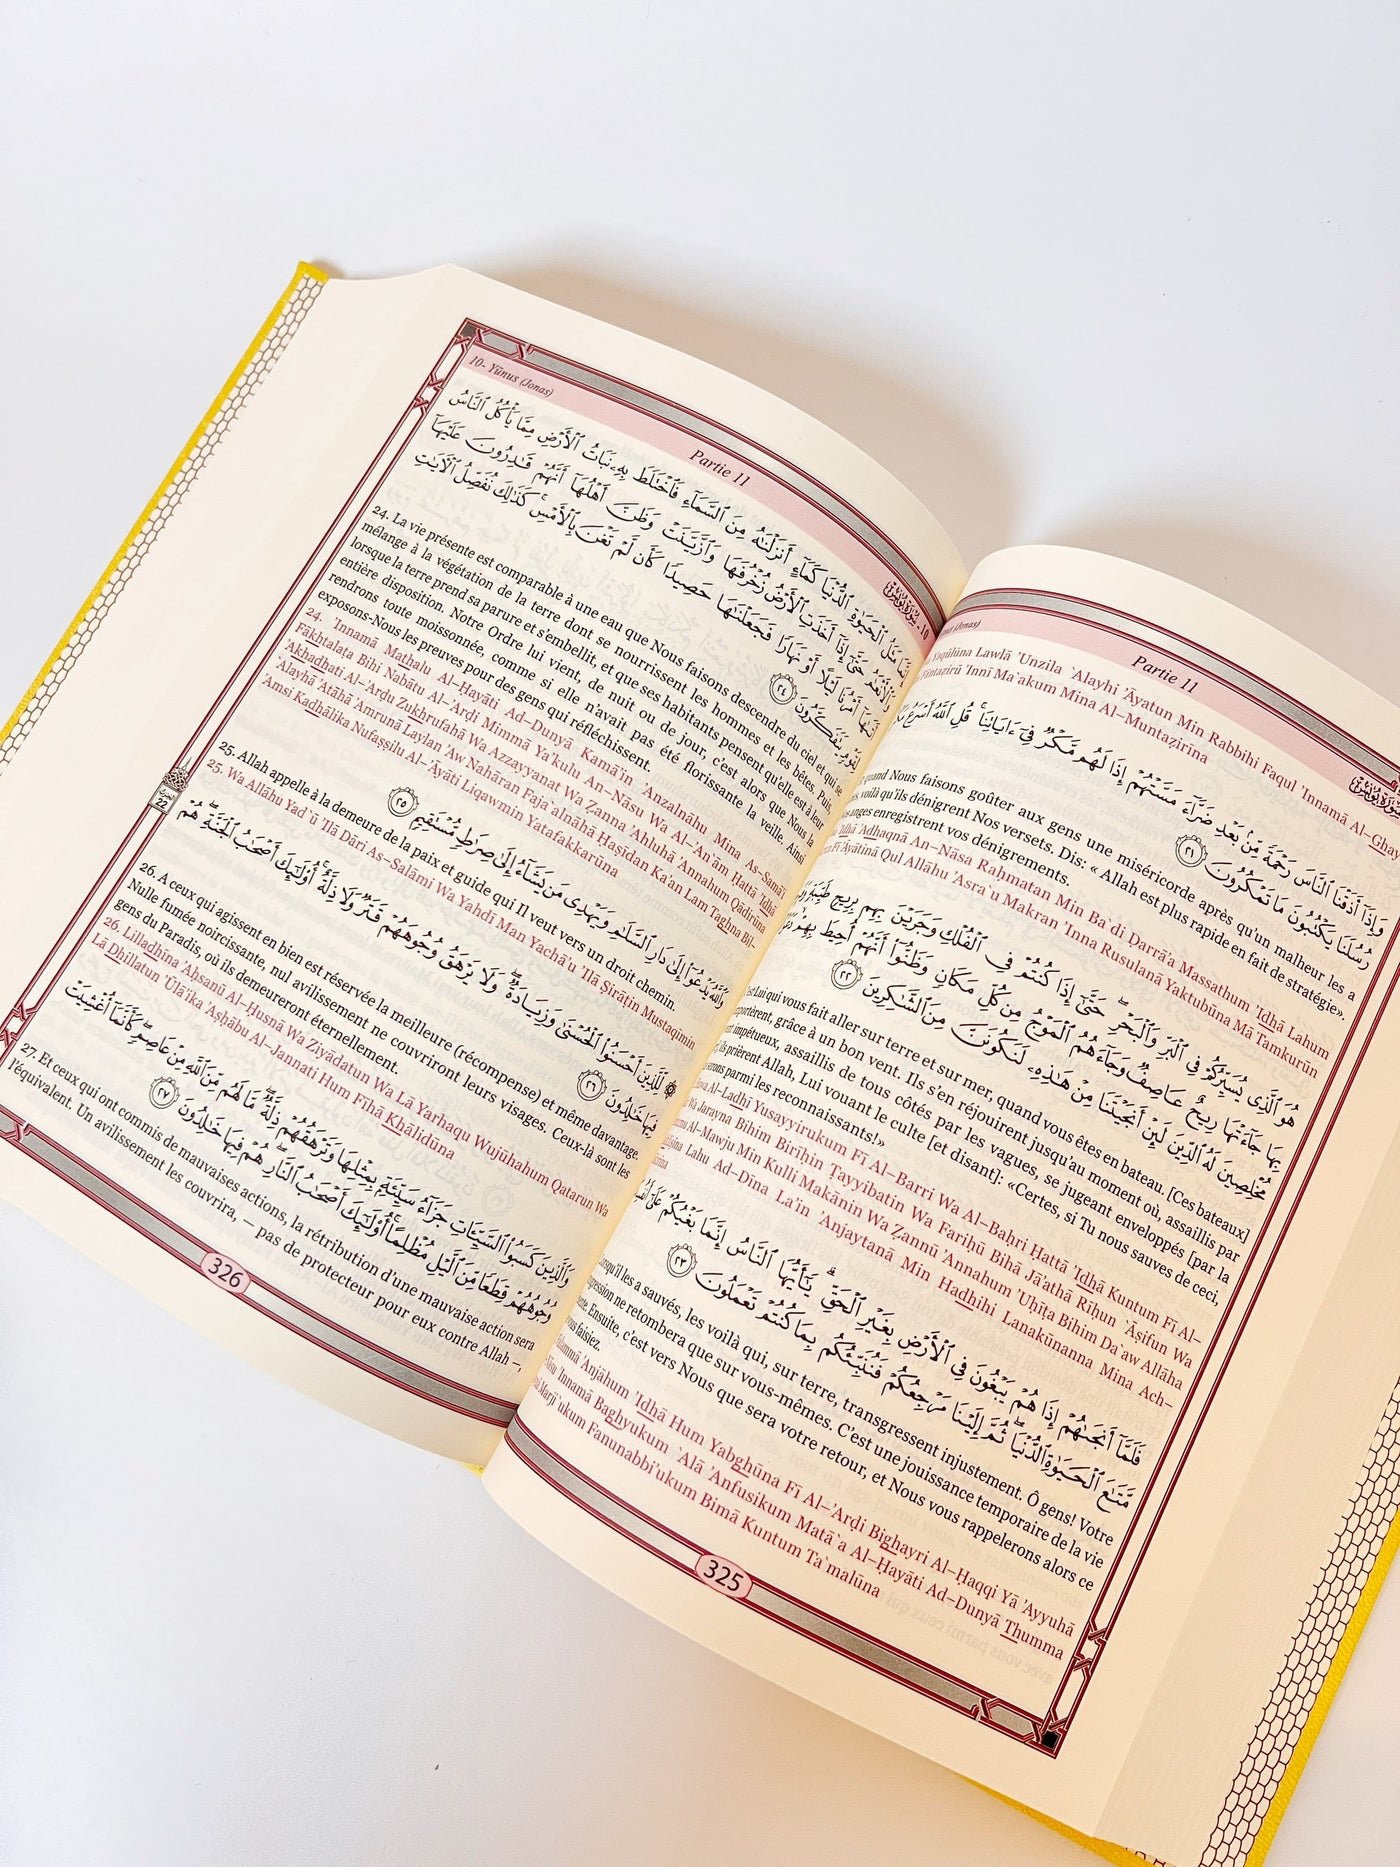 Partie 11
Yaqūlūna Lawlā 'Unzila `Alayhi 'Āyatun Min Rabbihi Faqul 'Innamā Al–Ghay
Fāntaẓirū 'Innī Ma`akum Mina Al–Muntaẓirīna
وَإِذَآ أَذَقْنَا ٱلنَّاسَ رَحْمَةً مِّنۢ بَعْدِ ضَرَّآءَ مَسَّتْهُمْ إِذَا لَهُم مَّكْرٌ فِىٓ ءَايَاتِنَا ۚ قُلِ ٱللَّهُ أَسْرَعُ
رُسُلَنَا يَكْتُبُونَ مَا تَمْكُرُونَ ٢١
quand Nous faisons goûter aux gens une miséricorde après qu'un malheur les a
voilà qu'ils dénigrent Nos versets. Dis: « Allah est plus rapide en fait de stratégie».
anges enregistrent vos dénigrements.
'Idhā 'Adhaqnā An–Nāsa Raḥmatan Min Ba`di Ḍarrā'a Massathum 'Idhā Lahum
Fī 'Āyātinā Qul Allāhu 'Asra`u Makran 'Inna Rusulanā Yaktubūna Mā Tamkurūn
هُوَ ٱلَّذِى يُسَيِّرُكُمْ فِى ٱلْبَرِّ وَٱلْبَحْرِ ۖ حَتَّىٰٓ إِذَا كُنتُمْ فِى ٱلْفُلْكِ وَجَرَيْنَ بِهِم بِرِيحٍ طَيِّبَةٍ
بِهَا جَآءَتْهَا رِيحٌ عَاصِفٌ وَجَآءَهُمُ ٱلْمَوْجُ مِن كُلِّ مَكَانٍ وَظَنُّوٓا۟ أَنَّهُمْ أُحِيطَ بِهِمْ ۙ
مُخْلِصِينَ لَهُ ٱلدِّينَ لَئِنْ أَنجَيْتَنَا مِنْ هَٰذِهِۦ لَنَكُونَنَّ مِنَ ٱلشَّٰكِرِينَ ٢٢
Lui qui vous fait aller sur terre et sur mer, quand vous êtes en bateau. [Ces bateaux]
grâce à un bon vent. Ils s'en réjouirent jusqu'au moment où, assaillis par
impétueux, assaillis de tous côtés par les vagues, se jugeant enveloppés [par la
ils prièrent Allah, Lui vouant le culte [et disant]: «Certes, si Tu nous sauves de ceci,
parmi les reconnaissants!»
Al–Ladhī Yusayyirukum Fī Al–Barri Wa Al–Baḥri Ḥattá 'Idhā Kuntum Fī Al–
Wa Jarayna Bihim Birīḥin Ṭayyibatin Wa Fariḥū Bihā Jā'athā Rīḥun `Āşifun Wa
Al–Mawju Min Kulli Makānin Wa Ẓannū 'Annahum 'Uḥīţa Bihim Da`aw Allāha
Lahu Ad–Dīna La'in 'Anjaytanā Min Hadhihi Lanakūnanna Mina Ach–
فَلَمَّآ أَنجَىٰهُمْ إِذَا هُمْ يَبْغُونَ فِى ٱلْأَرْضِ بِغَيْرِ ٱلْحَقِّ ۗ يَٰٓأَيُّهَا ٱلنَّاسُ إِنَّمَا بَغْيُكُمْ عَلَىٰٓ
مَّتَٰعَ ٱلْحَيَوٰةِ ٱلدُّنْيَا ۖ ثُمَّ إِلَيْنَا مَرْجِعُكُمْ فَنُنَبِّئُكُم بِمَا كُنتُمْ تَعْمَلُونَ ٢٣
les a sauvés, les voilà qui, sur terre, transgressent injustement. Ô gens! Votre
ne retombera que sur vous-mêmes. C'est une jouissance temporaire de la vie
Ensuite, c'est vers Nous que sera votre retour, et Nous vous rappelerons alors ce
faisiez.
'Anjāhum 'Idhā Hum Yabghūna Fī Al–'Arḍi Bighayri Al–Ḥaqqi Yā 'Ayyuhā
'Innamā Baghyukum `Alá 'Anfusikum Matā`a Al–Ḥayāti Ad–Dunyā Thumma
Marji`ukum Fanunabbi'ukum Bimā Kuntum Ta`malūna
325
10- Yūnus (Jonas)
Partie 11
إِنَّمَا مَثَلُ ٱلْحَيَوٰةِ ٱلدُّنْيَا كَمَآءٍ أَنزَلْنَٰهُ مِنَ ٱلسَّمَآءِ فَٱخْتَلَطَ بِهِۦ نَبَاتُ ٱلْأَرْضِ مِمَّا يَأْكُلُ ٱلنَّاسُ
وَٱلْأَنْعَٰمُ حَتَّىٰٓ إِذَآ أَخَذَتِ ٱلْأَرْضُ زُخْرُفَهَا وَٱزَّيَّنَتْ وَظَنَّ أَهْلُهَآ أَنَّهُمْ قَٰدِرُونَ عَلَيْهَآ
أَتَىٰهَآ أَمْرُنَا لَيْلًا أَوْ نَهَارًا فَجَعَلْنَٰهَا حَصِيدًا كَأَن لَّمْ تَغْنَ بِٱلْأَمْسِ ۚ كَذَٰلِكَ نُفَصِّلُ ٱلْءَايَٰتِ
لِقَوْمٍ يَتَفَكَّرُونَ ٢٤
24. La vie présente est comparable à une eau que Nous faisons descendre du ciel et qui se
mélange à la végétation de la terre dont se nourrissent les hommes et les bêtes. Puis,
lorsque la terre prend sa parure et s'embellit, et que ses habitants pensent qu'elle est à leur
entière disposition. Notre Ordre lui vient, de nuit ou de jour, c'est alors que Nous la
rendrons toute moissonnée, comme si elle n'avait pas été florissante la veille. Ainsi
exposons-Nous les preuves pour des gens qui réfléchissent.
24. 'Innamā Mathalu Al–Ḥayāti Ad–Dunyā Kamā'in 'Anzalnāhu Mina As–Samā'i
Fākhtalaţa Bihi Nabātu Al–'Arḍi Mimmā Ya'kulu An–Nāsu Wa Al–'An`ām Ḥattá 'Idhā
'Akhadhati Al–'Arḍu Zukhrufahā Wa Azzayyanat Wa Ẓanna 'Ahluhā 'Annahum Qādirūna
`Alayhā 'Atāhā 'Amrunā Laylan 'Aw Nahāran Faja`alnāhā Ḥaşīdan Ka'an Lam Taghna Bil–
'Amsi Kadhālika Nufaşşilu Al–'Āyāti Liqawmin Yatafakkarūna
وَٱللَّهُ يَدْعُوٓا۟ إِلَىٰ دَارِ ٱلسَّلَٰمِ وَيَهْدِى مَن يَشَآءُ إِلَىٰ صِرَٰطٍ مُّسْتَقِيمٍ ٢٥
25. Allah appelle à la demeure de la paix et guide qui Il veut vers un droit chemin.
25. Wa Allāhu Yad`ū 'Ilá Dāri As–Salāmi Wa Yahdī Man Yachā'u 'Ilá Şirāţin Mustaqīmin
22
لِّلَّذِينَ أَحْسَنُوا۟ ٱلْحُسْنَىٰ وَزِيَادَةٌ ۖ وَلَا يَرْهَقُ وُجُوهَهُمْ قَتَرٌ وَلَا ذِلَّةٌ ۚ أُو۟لَٰٓئِكَ أَصْحَٰبُ ٱلْجَنَّةِ ۖ هُمْ
فِيهَا خَٰلِدُونَ ٢٦
26. A ceux qui agissent en bien est réservée la meilleure (récompense) et même davantage.
Nulle fumée noircissante, nul avilissement ne couvriront leurs visages. Ceux-là sont les
gens du Paradis, où ils demeureront éternellement.
26. Lilladhīna 'Aḥsanū Al–Ḥusná Wa Ziyādatun Wa Lā Yarhaqu Wujūhahum Qatarun Wa
Lā Dhillatun 'Ūlā'ika 'Aşḥābu Al–Jannati Hum Fīhā Khālidūna
وَٱلَّذِينَ كَسَبُوا۟ ٱلسَّيِّـَٔاتِ جَزَآءُ سَيِّئَةٍۭ بِمِثْلِهَا وَتَرْهَقُهُمْ ذِلَّةٌ ۖ مَّا لَهُم مِّنَ ٱللَّهِ مِنْ عَاصِمٍ ۖ كَأَنَّمَآ أُغْشِيَتْ
وُجُوهُهُمْ قِطَعًا مِّنَ ٱلَّيْلِ مُظْلِمًا ۚ أُو۟لَٰٓئِكَ أَصْحَٰبُ ٱلنَّارِ ۖ هُمْ فِيهَا خَٰلِدُونَ ٢٧
27. Et ceux qui ont commis de mauvaises actions, la rétribution d'une mauvaise action sera
l'équivalent. Un avilissement les couvrira, — pas de protecteur pour eux contre Allah –,
326